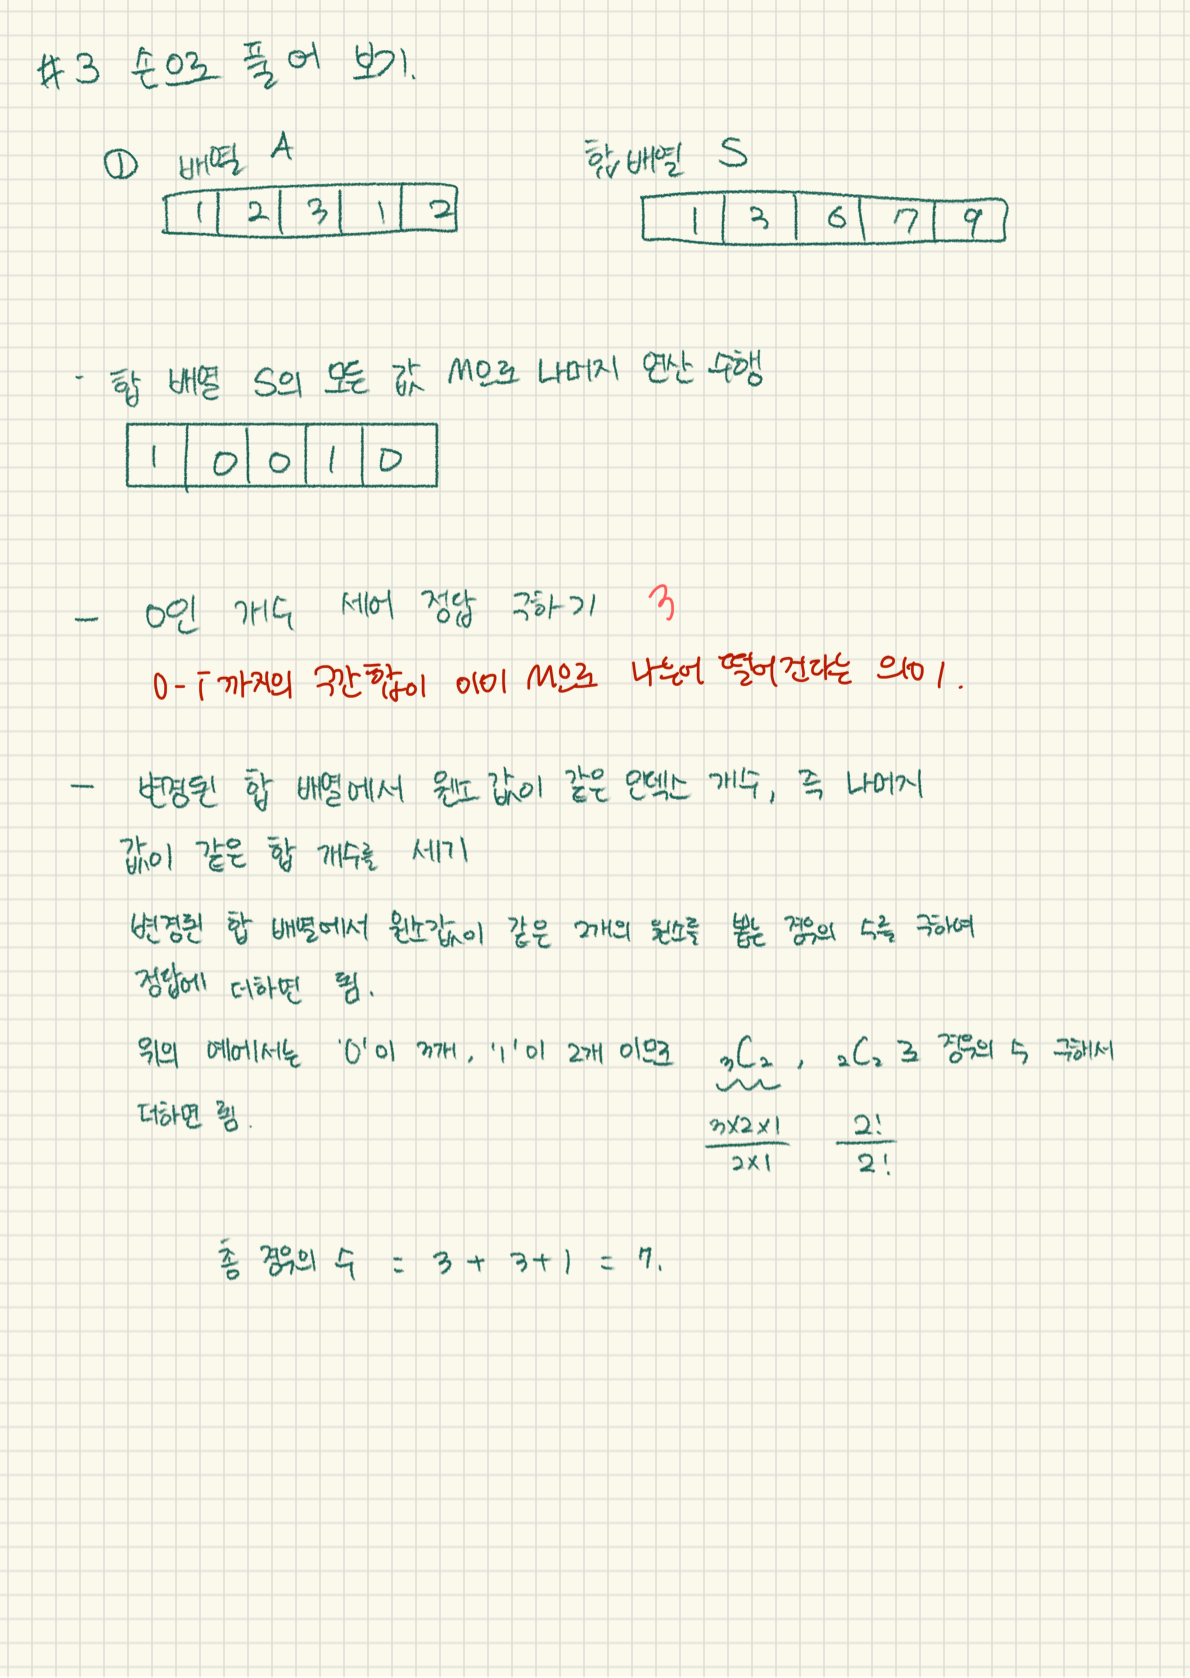 #3 손으로 풀어 보기.
① 배열 A 합배열 S
1 2 3 1 2 1 3 6 7 9
· 합 배열 S의 모든 값 M으로 나머지 연산 수행
1 0 0 1 0
- 0인 개수 세어 정답 구하기 3
0-i까지의 구간합이 이미 M으로 나누어 떨어진다는 의미.
- 변경된 합 배열에서 원소 값이 같은 인덱스 개수, 즉 나머지
값이 같은 합 개수를 세기
변경된 합 배열에서 원소값이 같은 2개의 원소를 뽑는 경우의 수를 구하여
정답에 더하면 됨.
위의 예에서는 '0'이 3개, '1'이 2개 이므로 ₃C₂, ₂C₂로 경우의 수 구해서
더하면 됨.
3×2×1 2!
2×1 2!
총 경우의 수 = 3 + 3+1 = 7.